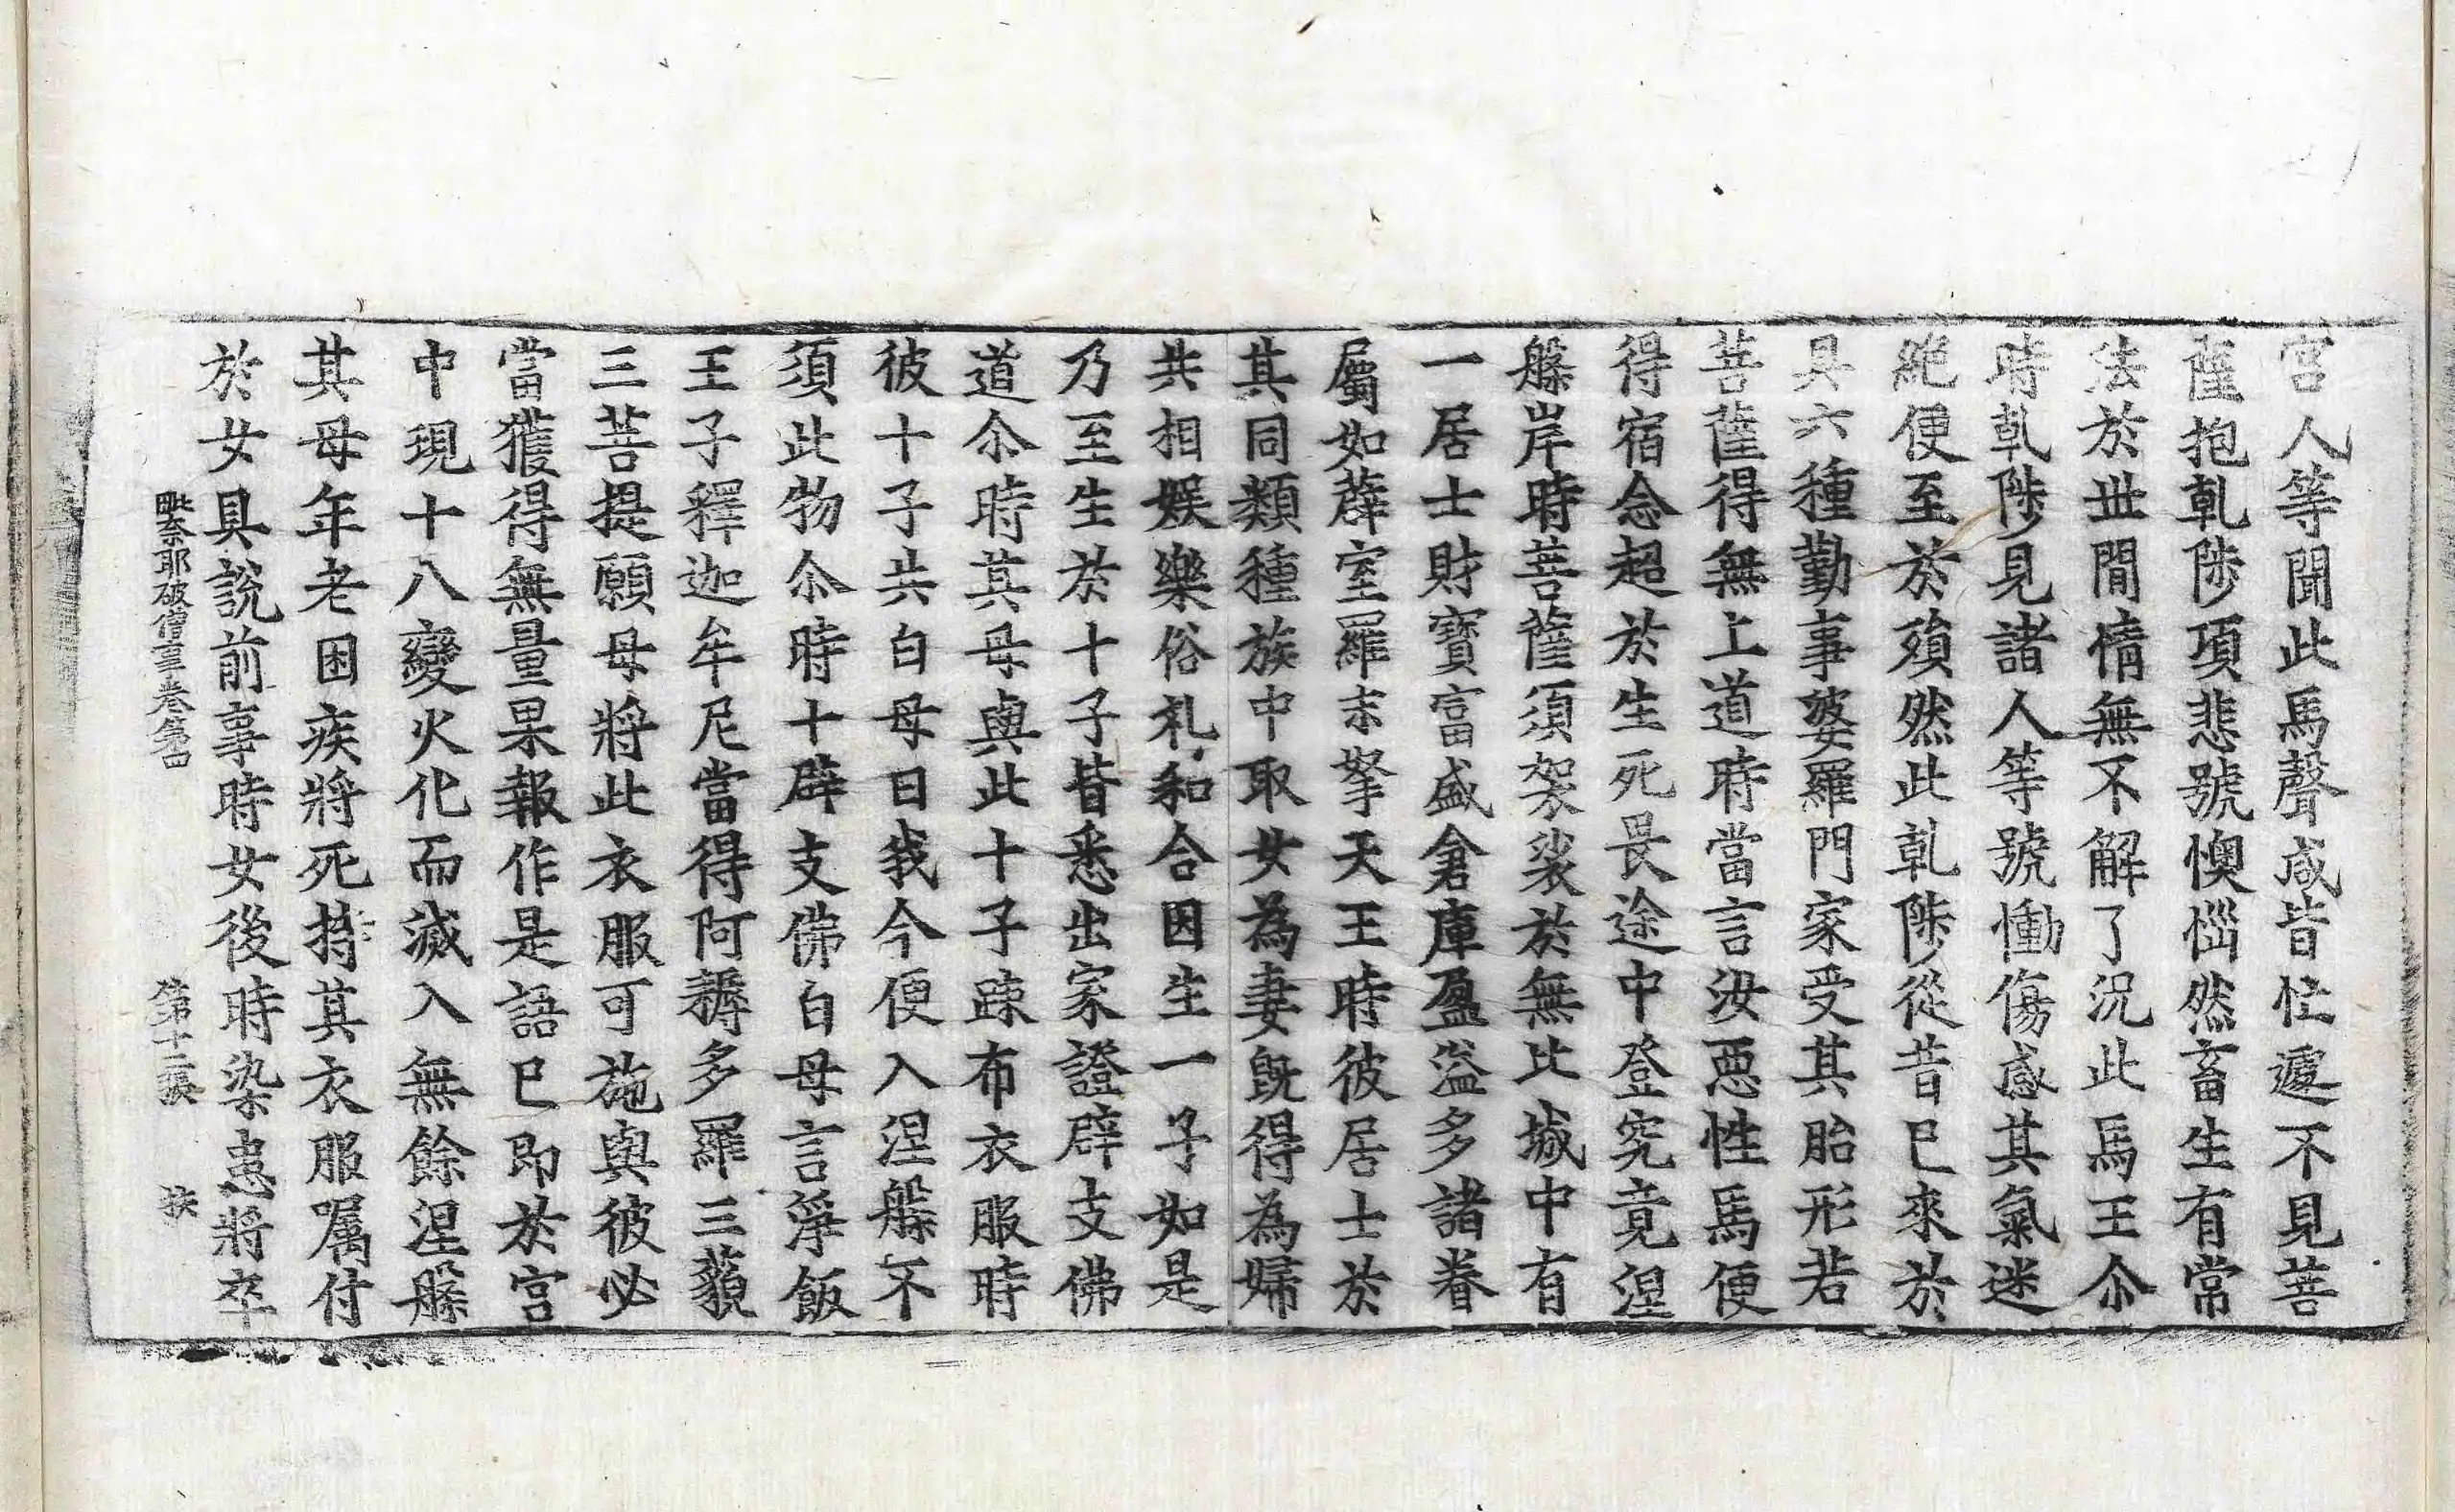 宮人等聞此馬聲咸皆忙遽不見菩
薩抱乹陟項悲號懊惱然畜生有常
法於丗間情無不解了況此馬王尒
時乹陟見諸人等號慟傷感其氣迷
絶便至於殞然此乹陟從昔已來於
具六種勤事婆羅門家受其胎形若
菩薩得無上道時當言汝悪性馬便
得宿念超於生死畏途中登究竟涅
槃岸時菩薩須袈裟於無比城中有
一居士財寳富盛倉庫盈溢多諸眷
屬如薜室羅末拏天王時彼居士於
其同類種族中取女為妻旣得為婦
共相娛樂俗礼和合因生一子如是
乃至生於十子皆悉出家證辟支佛
道尒時其母與此十子踈布衣服時
彼十子共白母曰我今便入涅槃不
須此物尒時十辟支佛白母言淨飯
王子釋迦牟尼當得阿耨多羅三藐
三菩提願母將此衣服可施與彼必
當獲得無量果報作是語已即於宮
中現十八變火化而滅入無餘涅槃
其母年老困疾將死持其衣服囑付
於女具說前事時女後時染患將卒
毗奈耶破僧事卷第四　第十二張　扶